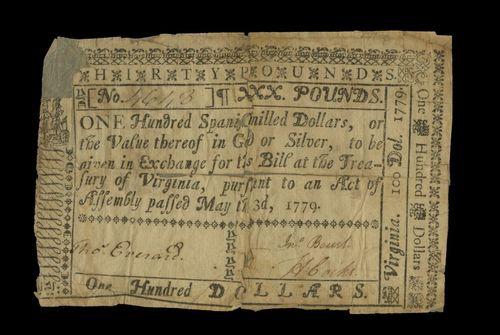 THIRTY POUNDS.
No. 4643 ¶ XXX. POUNDS.
ONE Hundred Spani milled Dollars, or
the Value thereof in Go or Silver, to be
given in Exchange for this Bill at the Trea-
sury of Virginia, pursuant to an Act of
Assembly passed May 3d, 1779.
Tho. Everard.
J Cocke
One Hundred DOLLARS.
Virginia. 100 Dol. 1779.
One Hundred Dollars